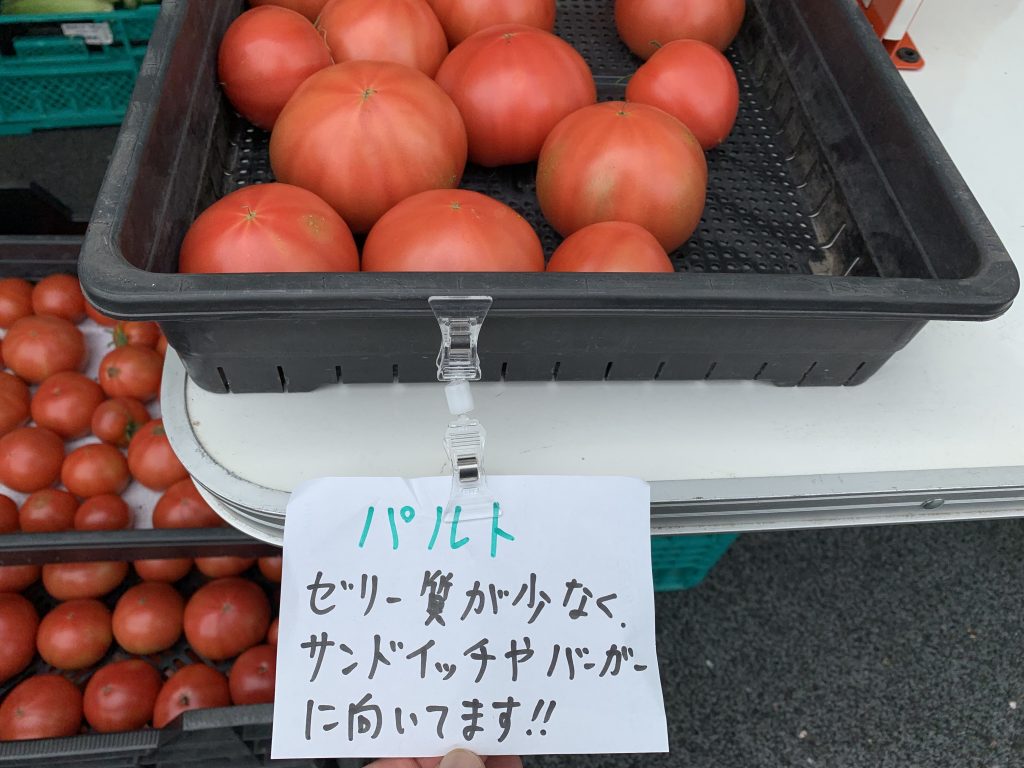 パルト
ゼリー質が少なく、
サンドイッチやバーガー
に向いてます!!